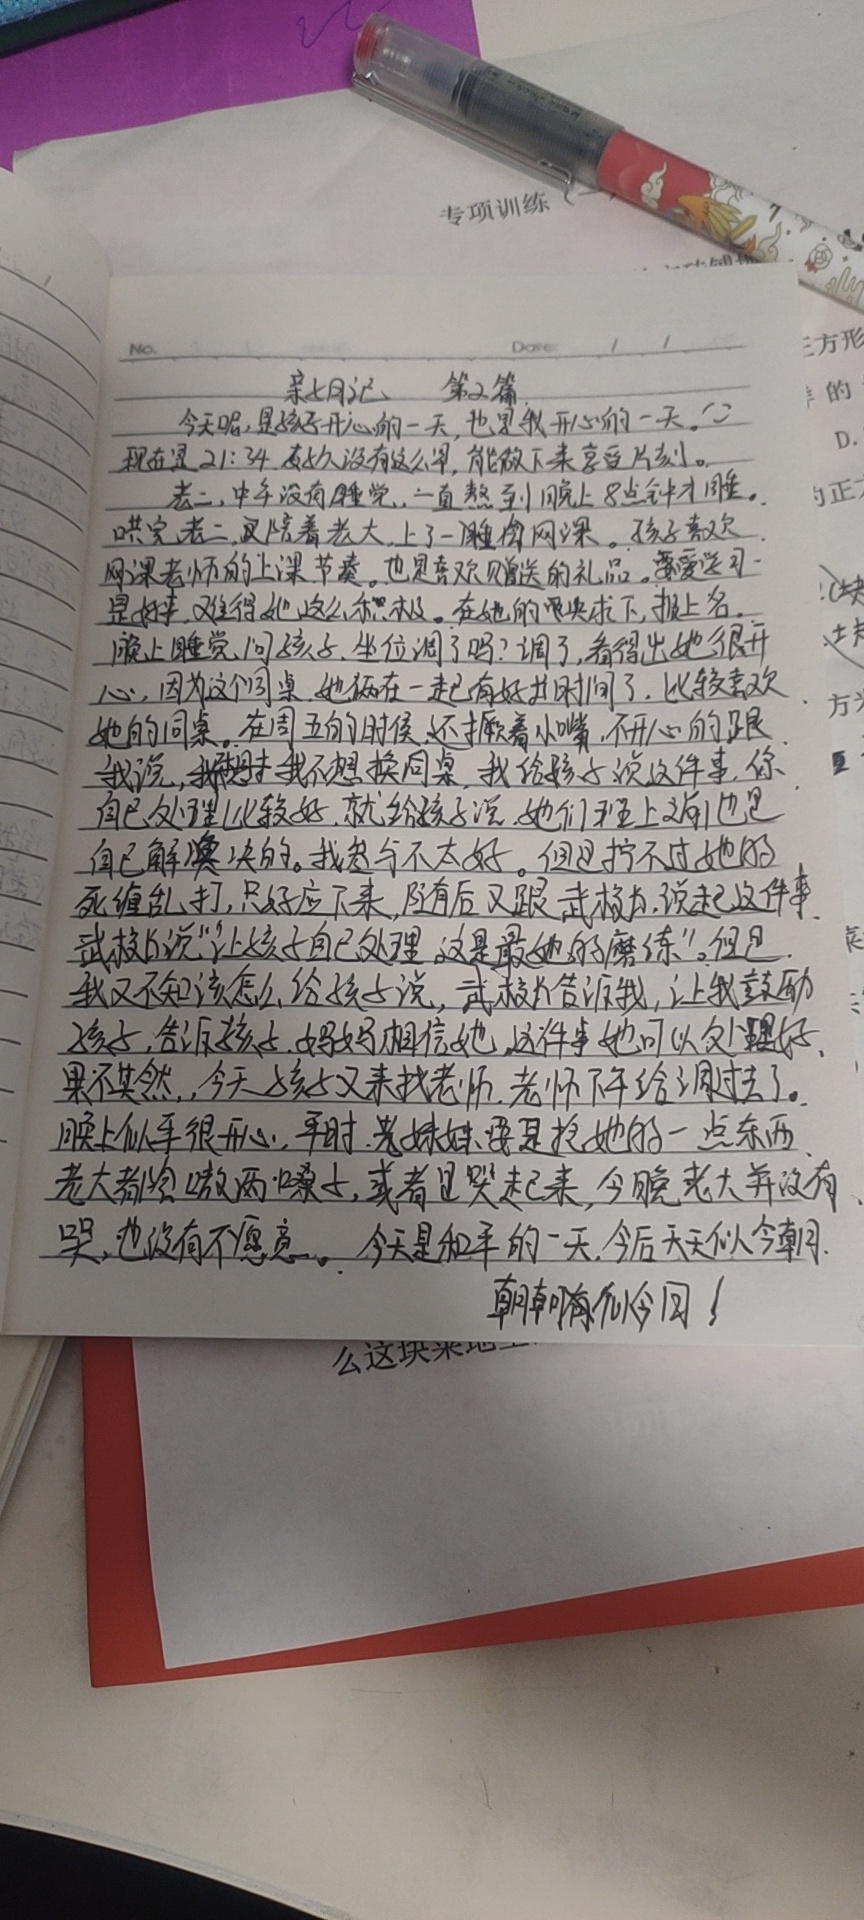 专项训练(一)
No.
Date
/ /
亲子日记 第2篇
今天呢,是孩子开心的一天,也是我开心的一天。
现在是21:34,好久没有这么早,能放下来享受片刻。
老二,中午没有睡觉,一直熬到晚上8点钟才睡。
哄完老二,又陪着老大,上了一睡网课。孩子喜欢
网课老师的上课节奏。也是喜欢赠送的礼品。爱学习
是好事,难得她这么积极。在她的央求下,报上名。
晚上睡觉,问孩子,坐位调了吗?调了,看得出她很开
心,因为这个同桌,她俩在一起有好长时间了,比较喜欢
她的同桌。在周五的时侯,还撅着小嘴,不开心的跟
我说,我不想换同桌,我给孩子说这件事,你
自己处理比较好,就给孩子说,她们班上也是
自己解决的。我参与不太好。但是拧不过她的
死缠乱打,只好应下来,随有后又跟武校长,说起这件事
武校长说“让孩子自己处理,这是最她的磨练”。但是
我又不知该怎么给孩子说,武校长告诉我,让我鼓励
孩子,告诉孩子,妈妈相信她,这件事她可以处理好,
果不其然,今天孩子又来找老师,老师下午给调过去了。
晚上似乎很开心,平时,老妹妹要是抢她的一点东西
老大都会嗷两嗓子,或者是哭起来,今晚老大并没有
哭,也没有不愿意。今天是和平的一天,今后天天似今朝,
朝朝有似今日!
三方形
的
D.
的正方
方
么这块菜地